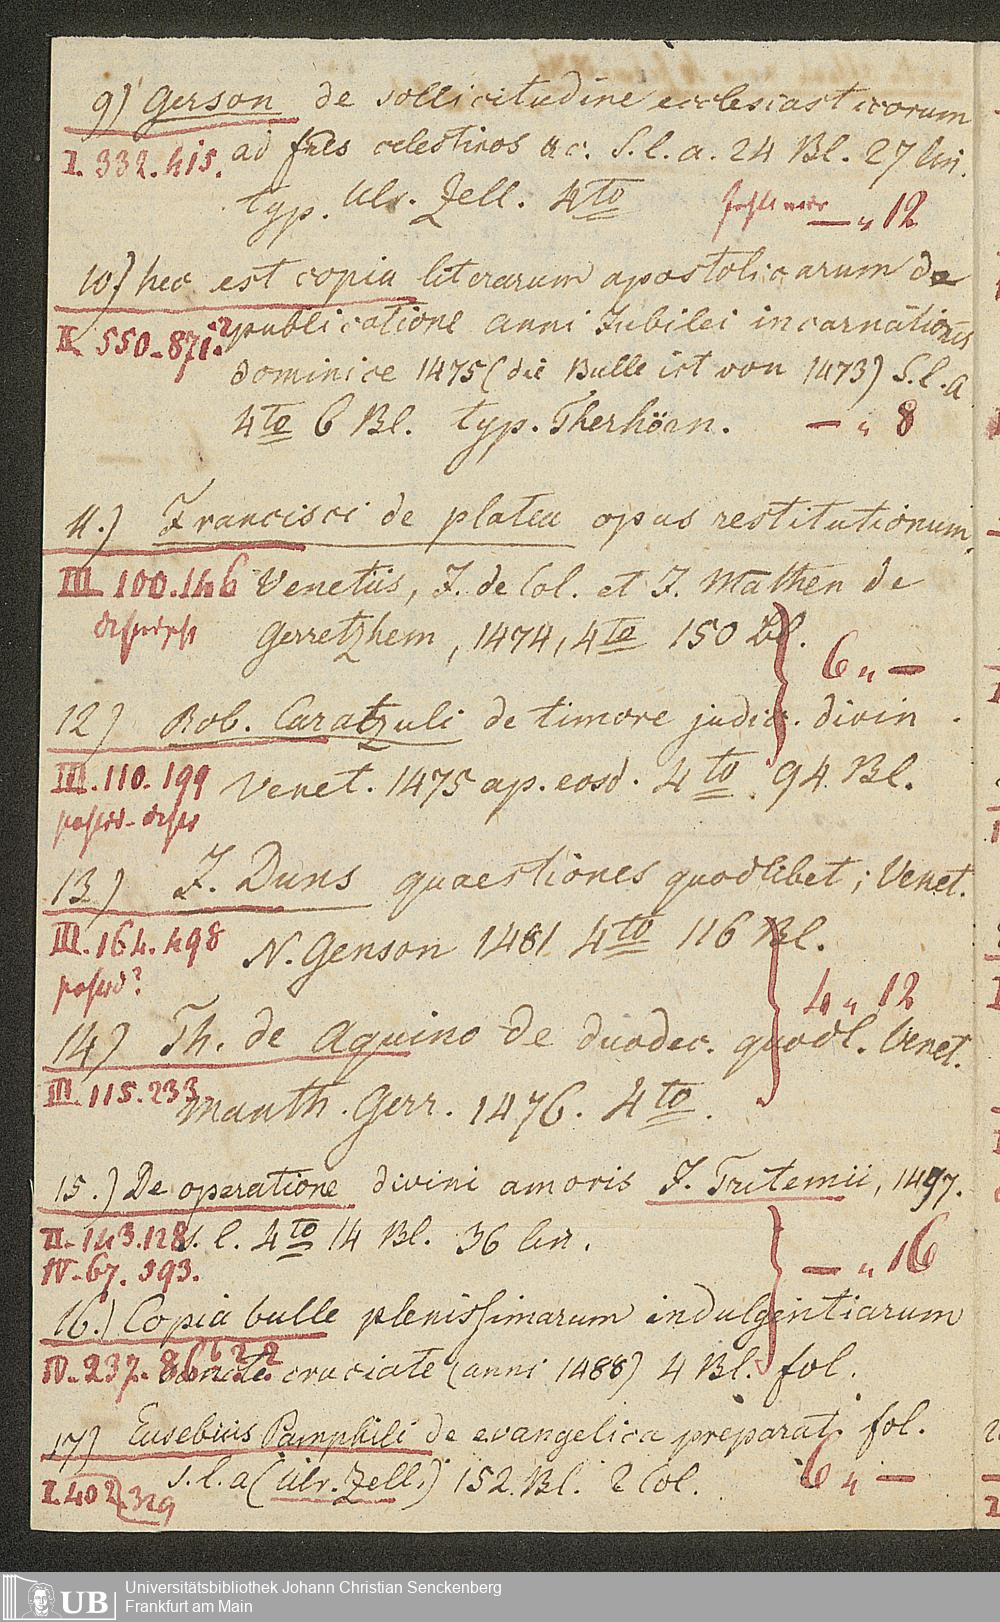 9) Gerson de sollicitudine ecclesiasticorum
I. 332. 415. ad fres celestinos &c. S. l. a. 24 Bl. 27 lin.
typ. Ulr. Zell. 4to — „ 12
10) hec est copia literarum apostolicarum de
II. 550. 871. publicatione anni Iubilei incarnationis
dominice 1475 (die Bulle ist von 1473) S. l. a
4to 6 Bl. typ. Therhörn. — „ 8
11.) Francisci de platea opus restitutionum,
III 100. 146 Venetiis, J. de Col. et J. Mathen de
Gerretzhem, 1474, 4to 150 Bl.
6 „ —
12) Rob. Caratzuli de timore judic. divin.
III. 110. 199 Venet. 1475 ap. eosd. 4to. 94 Bl.
13) J. Duns quaestiones quodlibet; Venet.
III. 164. 498 N. Genson 1481 4to 116 Bl.
4 „ 12
14) Th. de Aquino de duodec. quodl. Venet.
III. 115. 233. Manth. Gerr. 1476. 4to.
15.) De operatione divini amoris J. Tritemii, 1497.
II. 143. 128 s. l. 4to 14 Bl. 36 lin.
IV. 67. 593. — „ 16
16.) Copia bulle plenissimarum indulgentiarum
IV. 237. cruciate (anni 1488) 4 Bl. fol.
17) Eusebius Pamphili de evangelica preparat. fol.
I. 402. 329 s. l. a (Ulr. Zell.) 152. Bl. 2 Col. 6 „ —
UB Universitätsbibliothek Johann Christian Senckenberg
Frankfurt am Main